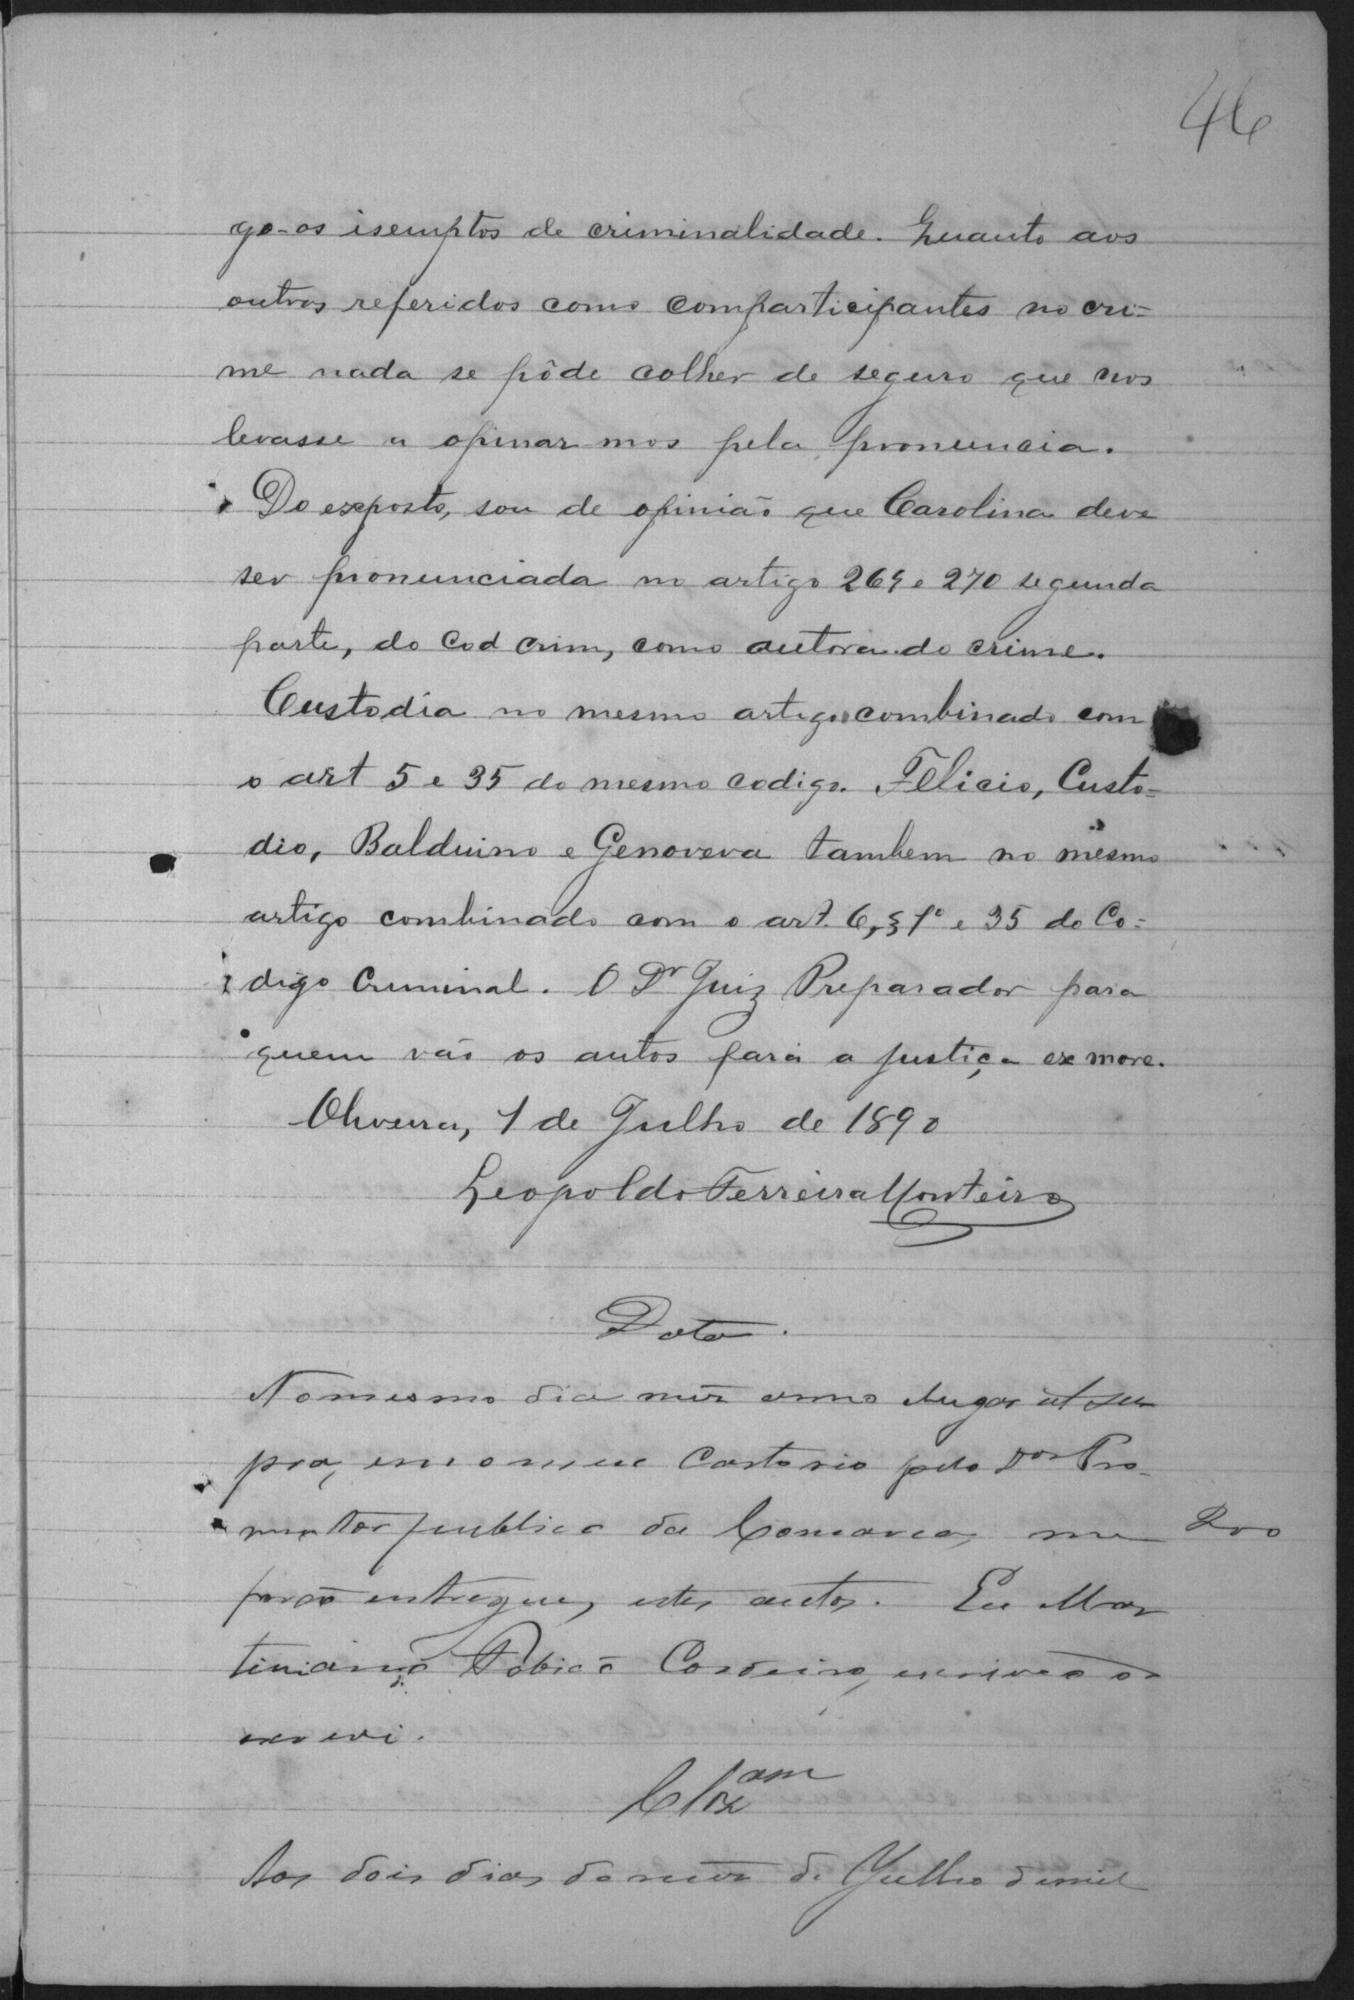 46
go-os isemptos de criminalidade. Quanto aos
outros referidos como comparticipantes no cri=
me nada se pôde colher de seguro que nos
levasse a opinar-mos pela pronuncia.
Do exposto, sou de opinião que Carolina deve
ser pronunciada no artigo 269 e 270 segunda
parte, do Cod crim, como autora do crime.
Custodia no mesmo artigo combinado com
o art 5 e 35 do mesmo codigo. Felicio, Custo=
dio, Balduino e Genoveva tambem no mesmo
artigo combinado com o art. 6, § 1º e 35 do Co=
digo Criminal. O Dr Juiz Preparador para
quem vão os autos fará a justiça ex more.
Oliveira, 1 de Julho de 1890
Leopoldo Ferreira Monteiro
Data.
No mesmo dia mez anno e lugar ut su
pra, em o meu Cartorio pelo Dor Pro-
motor publico da Comarca, me
200
forão entregues estes autos. Eu Mar
tiniano Cordeiro, escrivão o
escrevi.
Clzam
Aos dois dias do mez de Julho de mil